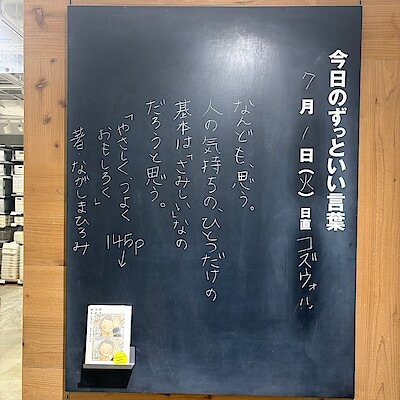 今日のずっといい言葉
7月1日(火)日直 コズヴォル
なんども、思う。
人の気持ちの、ひとつだけの
基本は「さみしい」なの
だろうと思う。
「やさしく、つよく
おもしろく」
145p↓
著 ながしまひろみ